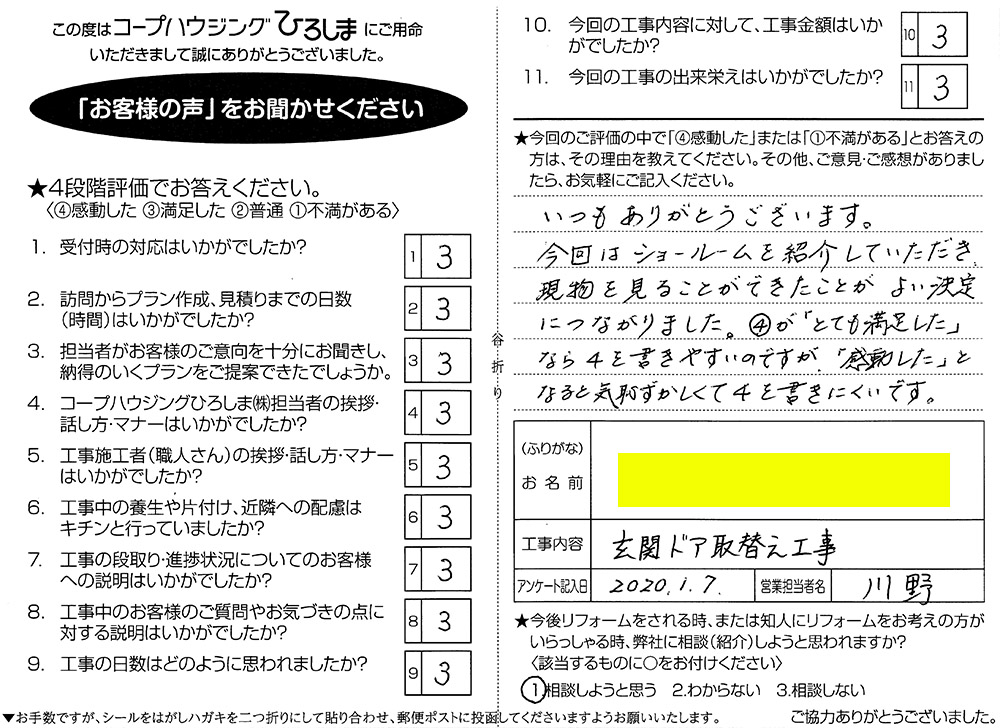 この度はコープハウジングひろしまにご用命
いただきまして誠にありがとうございました。
「お客様の声」をお聞かせください
★4段階評価でお答えください。
〈④感動した ③満足した ②普通 ①不満がある〉
1. 受付時の対応はいかがでしたか?
1 3
2. 訪問からプラン作成、見積りまでの日数
（時間）はいかがでしたか?
2 3
3. 担当者がお客様のご意向を十分にお聞きし、
納得のいくプランをご提案できたでしょうか。
3 3
4. コープハウジングひろしま㈱担当者の挨拶・
話し方・マナーはいかがでしたか?
4 3
5. 工事施工者（職人さん）の挨拶・話し方・マナー
はいかがでしたか?
5 3
6. 工事中の養生や片付け、近隣への配慮は
キチンと行っていましたか?
6 3
7. 工事の段取り・進捗状況についてのお客様
への説明はいかがでしたか?
7 3
8. 工事中のお客様のご質問やお気づきの点に
対する説明はいかがでしたか?
8 3
9. 工事の日数はどのように思われましたか?
9 3
谷折り
10. 今回の工事内容に対して、工事金額はいか
がでしたか?
10 3
11. 今回の工事の出来栄えはいかがでしたか?
11 3
★今回のご評価の中で「④感動した」または「①不満がある」とお答えの
方は、その理由を教えてください。その他、ご意見・ご感想がありまし
たら、お気軽にご記入ください。
いつもありがとうございます。
今回はショールームを紹介していただき、
現物を見ることができたことが よい決定
につながりました。④が「とても満足した」
なら4を書きやすいのですが、「感動した」と
なると気恥ずかしくて4を書きにくいです。
（ふりがな）
お名前
工事内容 玄関ドア取替え工事
アンケート記入日 2020.1.7. 営業担当者名 川野
★今後リフォームをされる時、または知人にリフォームをお考えの方が
いらっしゃる時、弊社に相談（紹介）しようと思われますか?
〈該当するものに○をお付けください〉
①相談しようと思う 2.わからない 3.相談しない
▼お手数ですが、シールをはがしハガキを二つ折りにして貼り合わせ、郵便ポストに投函してくださいますようお願いいたします。
ご協力ありがとうございました。